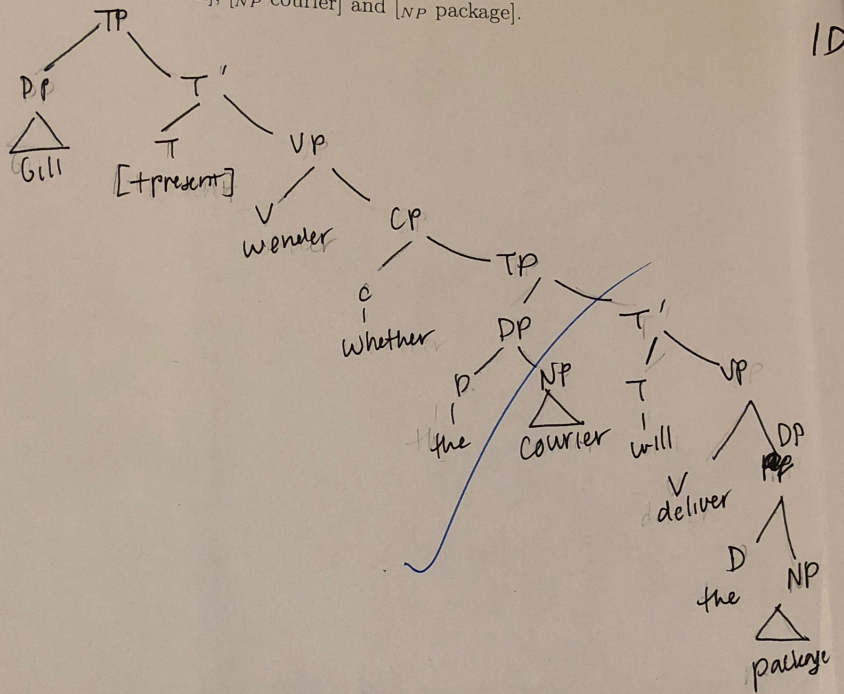 ], [NP courier] and [NP package].
1D
TP
DP T'
T VP
Gill [+present]
V CP
wonder
C TP
whether
DP T'
D NP T VP
the courier will
V DP
deliver
D NP
the
package